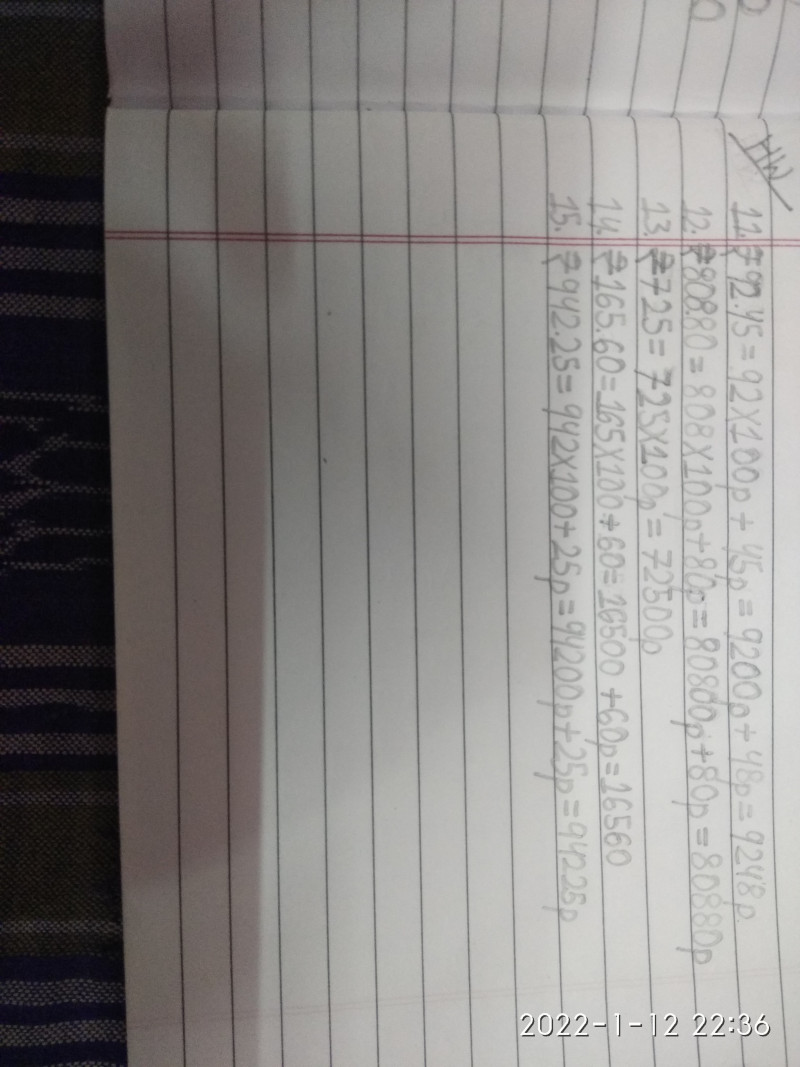 HW
11. ₹92.45 = 92X100p + 45p = 9200p + 48p = 9248p.
12. ₹808.80 = 808X100p+80p = 80800p+80p = 80880p
13. ₹725 = 725X100p = 72500p
14. ₹165.60=165X100+60=16500+60p=16560
15. ₹942.25 = 942X100+25p = 94200p+25p = 94225p
2022-1-12 22:36